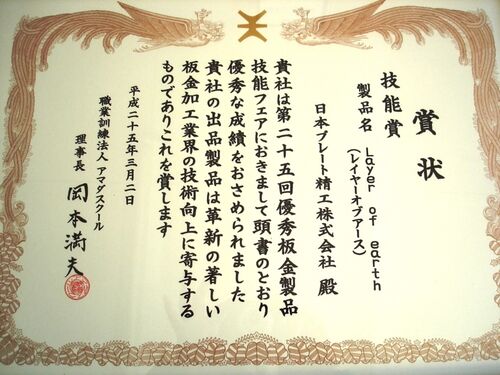 賞状
技能賞
製品名 Layer of earth
(レイヤーオブアース)
日本プレート精工株式会社 殿
貴社は第二十五回優秀板金製品
技能フェアにおきまして頭書のとおり
優秀な成績をおさめられました
貴社の出品製品は革新の著しい
板金加工業界の技術向上に寄与する
ものでありこれを賞します
平成二十五年三月二日
職業訓練法人 アマダスクール
理事長 岡本満夫